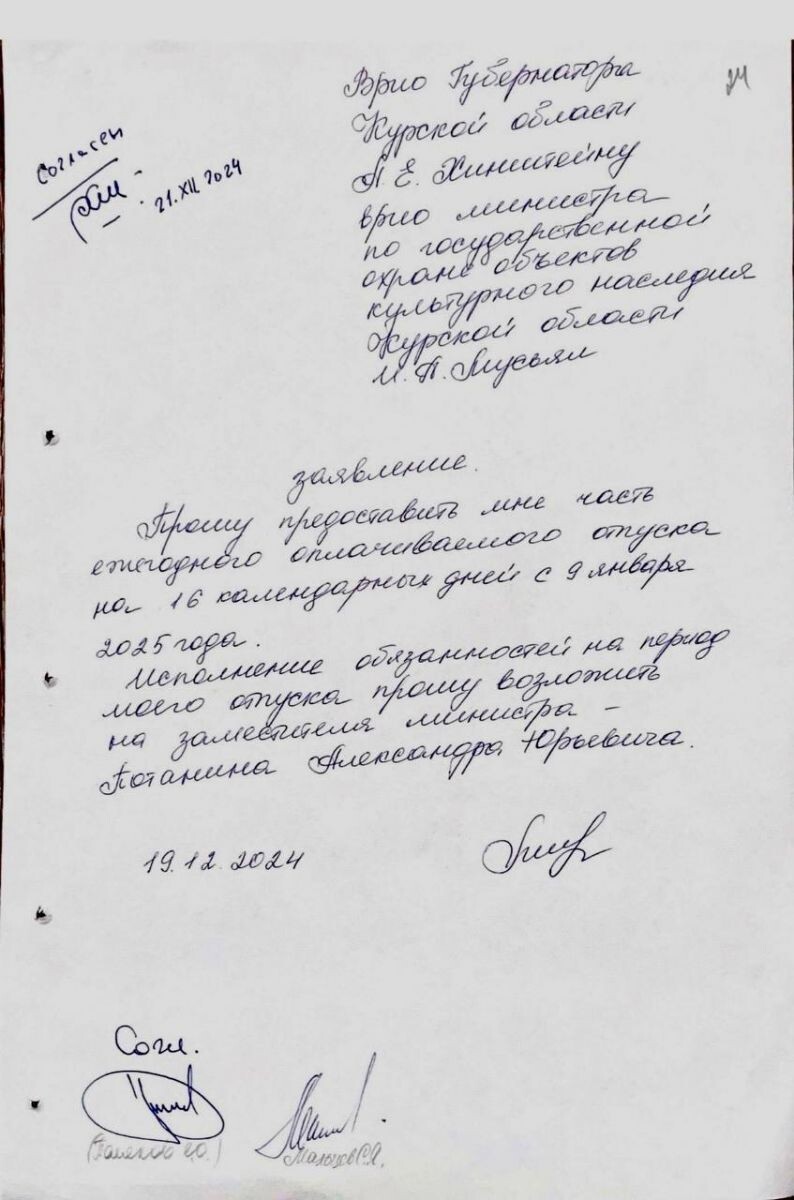 24
Врио Губернатора
Курской области
А. Е. Хинштейну
врио министра
по государственной
охране объектов
культурного наследия
Курской области
И. П. Мусьял
Согласен
21.XII.2024
заявление.
Прошу предоставить мне часть
ежегодного оплачиваемого отпуска
на 16 календарных дней с 9 января
2025 года.
Исполнение обязанностей на период
моего отпуска прошу возложить
на заместителя министра –
Потанина Александра Юрьевича.
19.12.2024
Согл.
Мальцев С.Я.